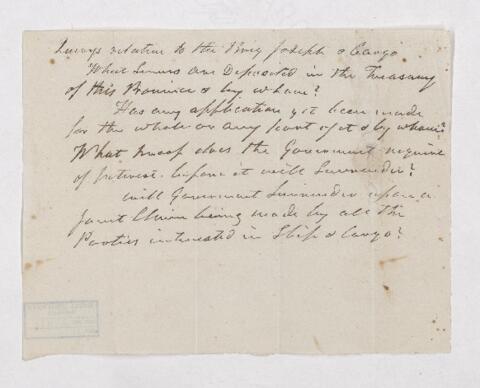 Querys relative to the Brig Joseph & Cargo
What Sums are Deposited in the Treasury
of this Province & by whom?
Has any application yet been made
for the whole or any part of it & by whom?
What proof does the Government require
of Interest before it will Surrender?
will Government Surrender upon a
Joint Claim being made by all the
Parties interested in Ship & Cargo?